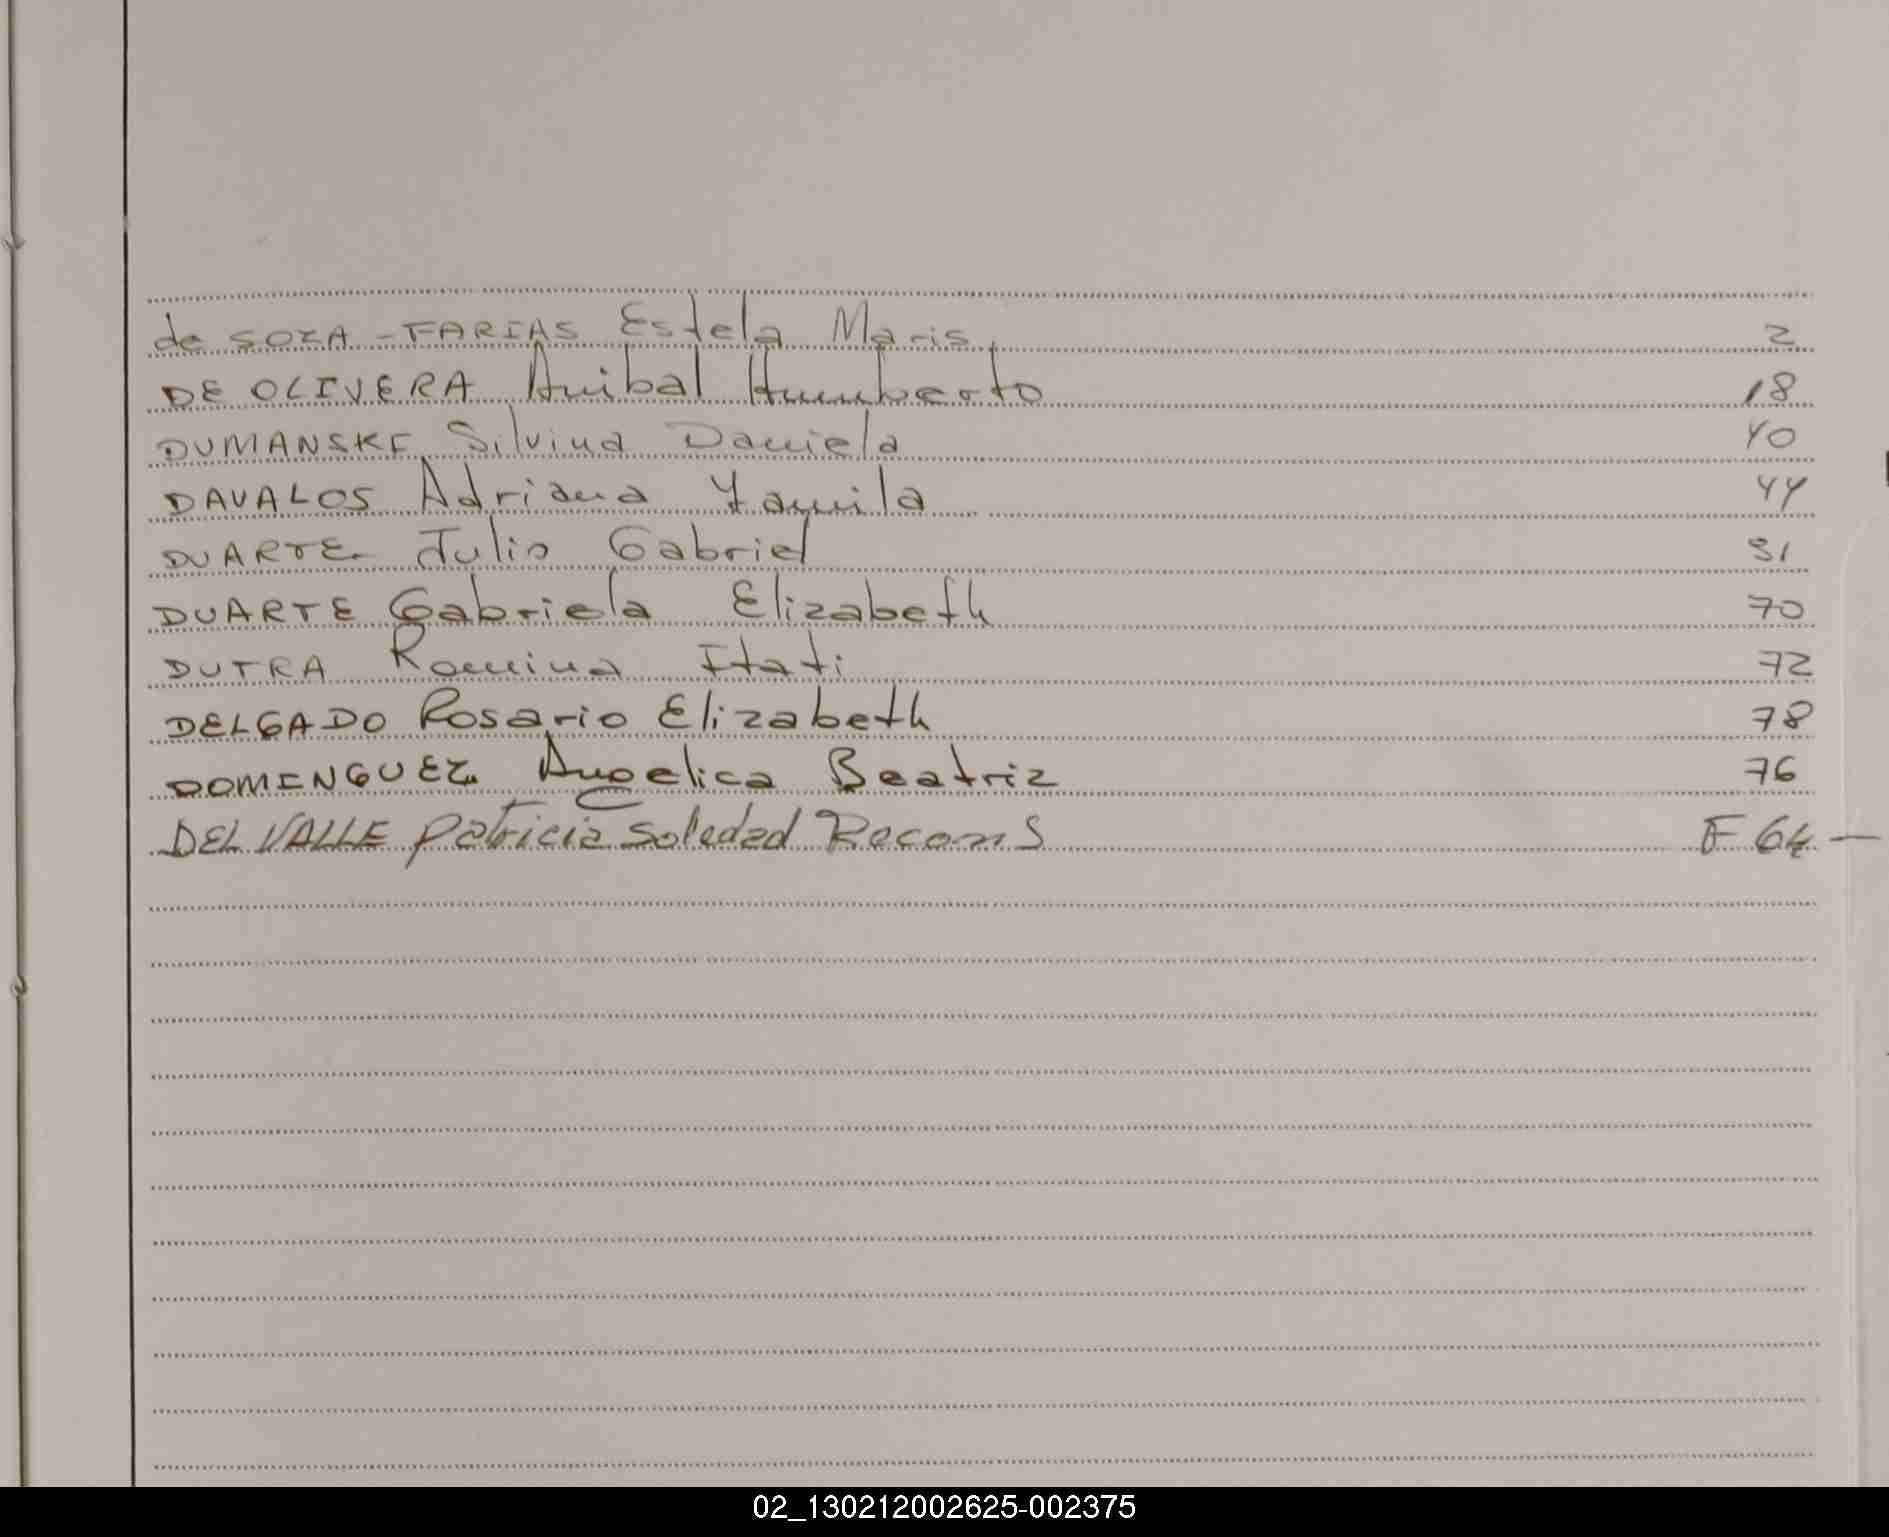 de SOZA - FARIAS Estela Maris 2
DE OLIVERA Anibal Humberto 18
DUMANSKI Silvina Daniela 40
DAVALOS Adriana Yamila 44
DUARTE Julio Gabriel 51
DUARTE Gabriela Elizabeth 70
DUTRA Romina Itati 72
DELGADO Rosario Elizabeth 78
DOMINGUEZ Angelica Beatriz 76
DEL VALLE Patricia Soledad F 64 —
02_130212002625-002375